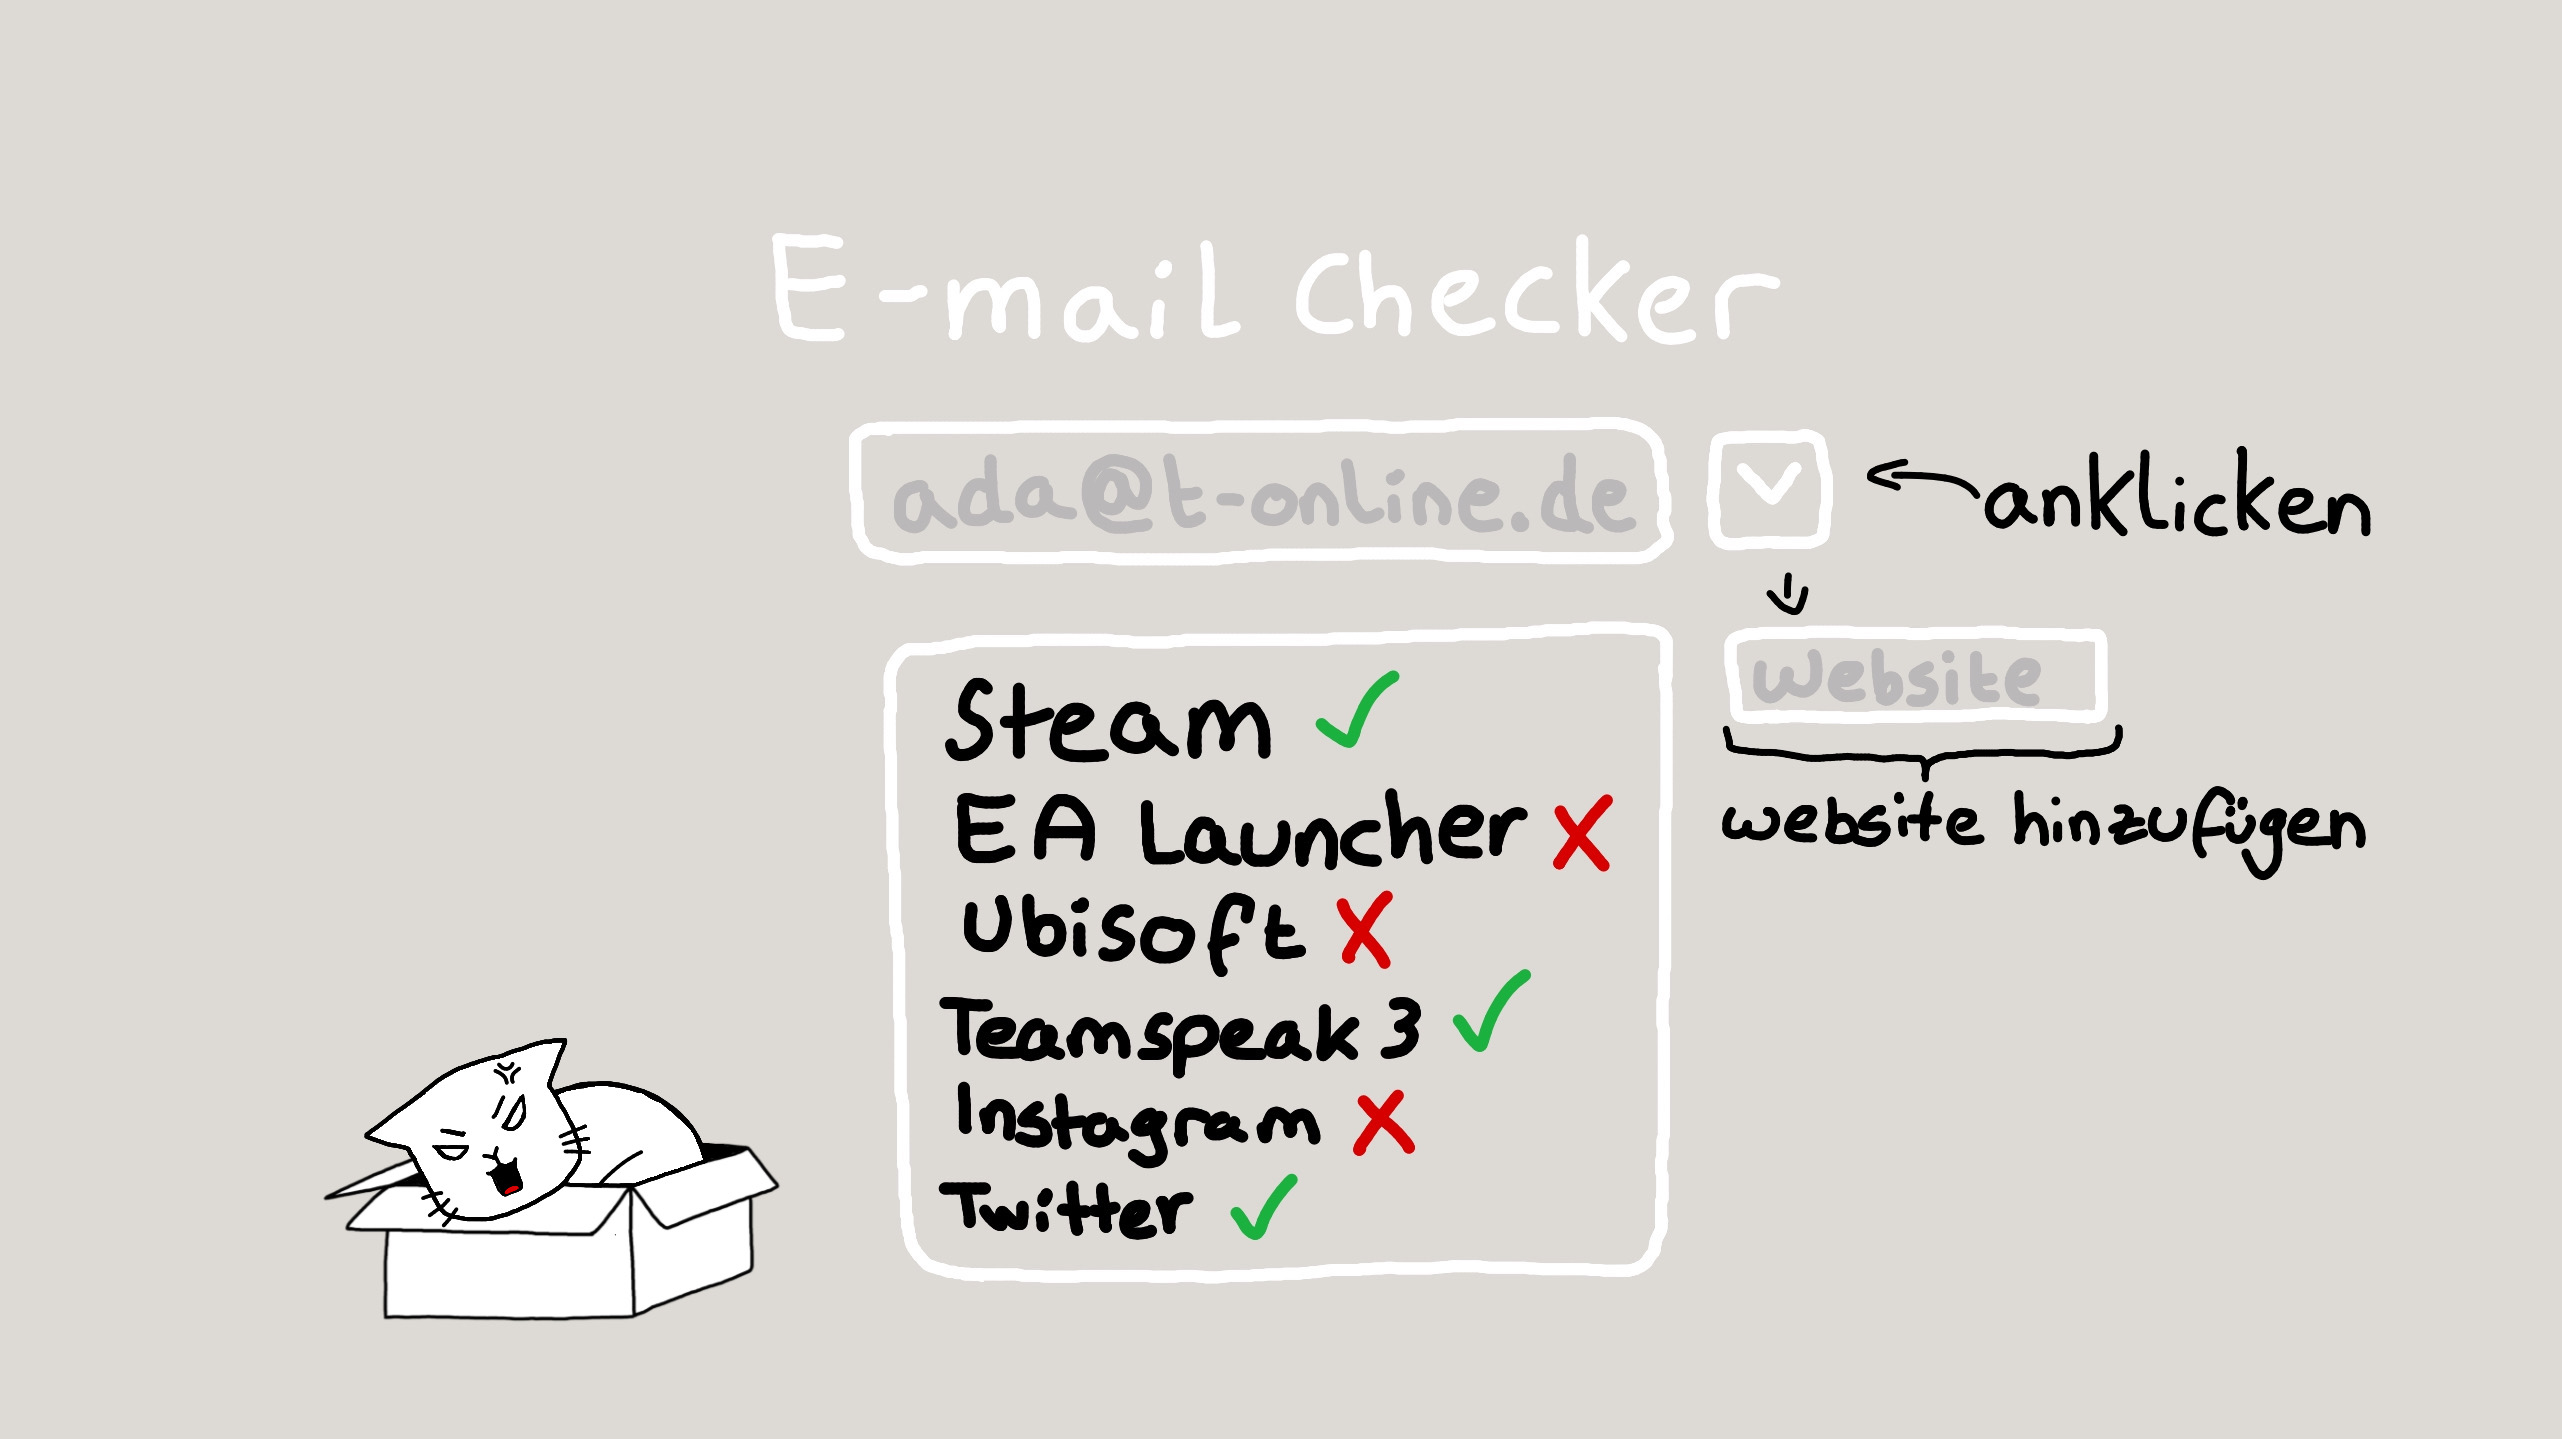 E-mail Checker
ada@t-online.de
anklicken
Website
website hinzufügen
Steam
EA Launcher
Ubisoft
Teamspeak 3
Instagram
Twitter